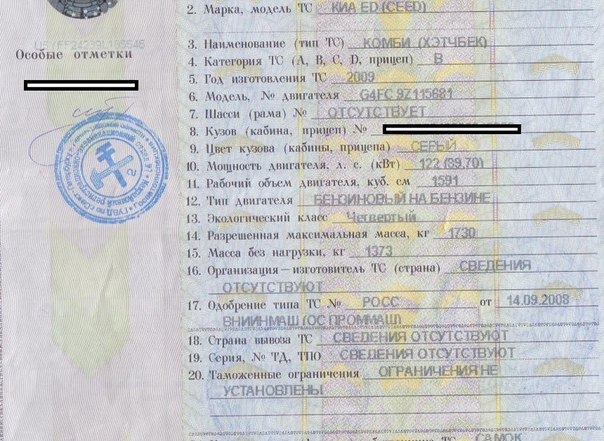 2. Марка, модель ТС КИА ED (CEED)
Особые отметки
3. Наименование (тип ТС) КОМБИ (ХЭТЧБЕК)
4. Категория ТС (А, В, С, D, прицеп) В
5. Год изготовления ТС 2009
6. Модель, № двигателя G4FC 9Z115681
7. Шасси (рама) № ОТСУТСТВУЕТ
8. Кузов (кабина, прицеп) №
9. Цвет кузова (кабины, прицепа) СЕРЫЙ
10. Мощность двигателя, л. с. (кВт) 122 (89,70)
11. Рабочий объем двигателя, куб. см 1591
12. Тип двигателя БЕНЗИНОВЫЙ НА БЕНЗИНЕ
13. Экологический класс Четвертый
14. Разрешенная максимальная масса, кг 1730
15. Масса без нагрузки, кг 1373
16. Организация—изготовитель ТС (страна) СВЕДЕНИЯ
ОТСУТСТВУЮТ
17. Одобрение типа ТС № РОСС от 14.09.2008
ВНИИНМАШ (ОС ПРОММАШ)
18. Страна вывоза ТС СВЕДЕНИЯ ОТСУТСТВУЮТ
19. Серия, № ТД, ТПО СВЕДЕНИЯ ОТСУТСТВУЮТ
20. Таможенные ограничения ОГРАНИЧЕНИЯ НЕ
УСТАНОВЛЕНЫ